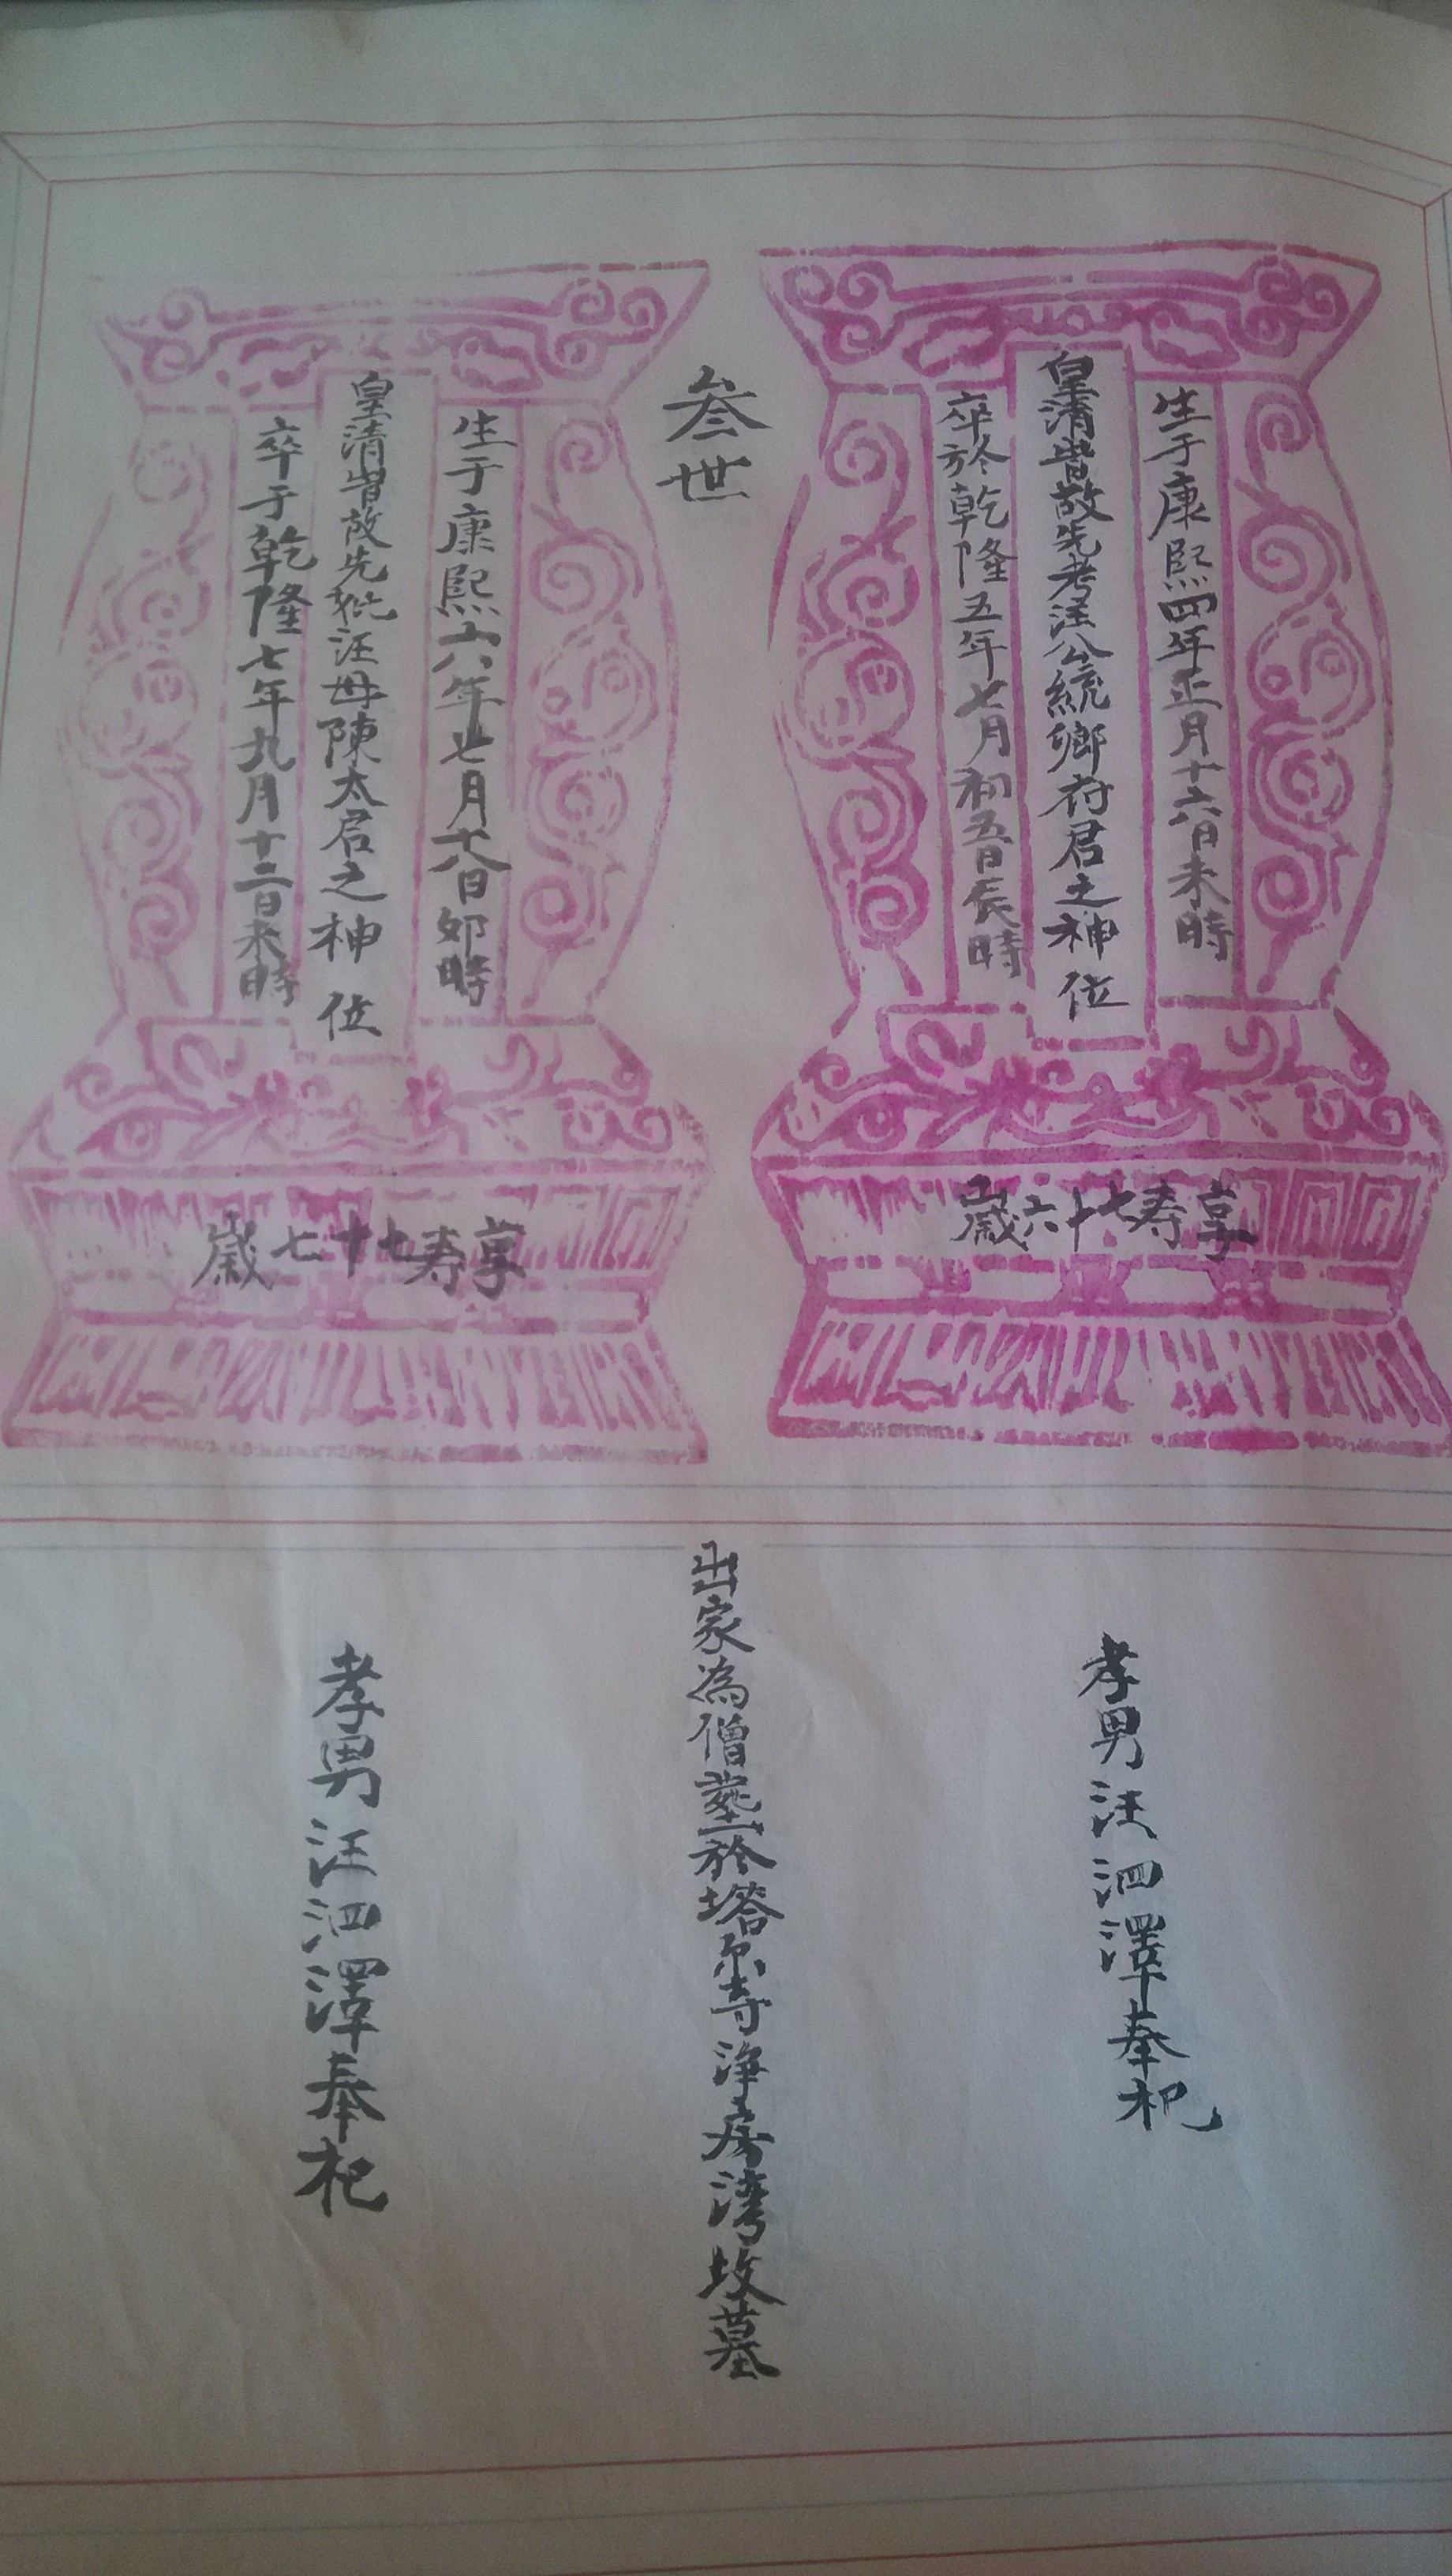 叁世
生于康熙四年正月十六日未時
皇清昔故先考汪公統鄉府君之神位
卒於乾隆五年七月初五日辰時
享寿七十六歲
生于康熙六年七月十八日卯時
皇清皆故先妣汪母陳太君之神位
卒于乾隆七年九月十二日未時
享寿七十七歲
孝男汪泗澤奉祀
出家為僧葬於塔尔寺净房湾坟墓
孝男汪泗澤奉祀